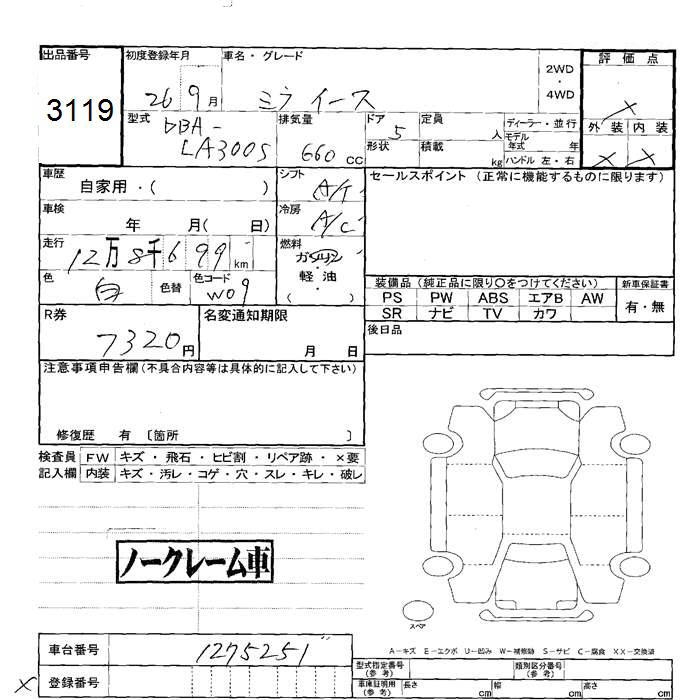 出品番号 初度登録年月 車名・グレード 2WD・4WD 評価点
3119 26 9月 ミライース
型式 DBA-LA300S 排気量 660 cc ドア 5 定員 人 ディーラー・並行 外装 内装
形状 積載 kg モデル年式 年 ハンドル 左・右
車歴 自家用・( ) シフト A/T セールスポイント (正常に機能するものに限ります)
車検 年 月( 日) 冷房 A/C
走行 12万8千699km 燃料 ガソリン・軽油 ( )
色 白 色替 色コード W09 装備品 (純正品に限り〇をつけてください) 新車保証書
PS PW ABS エアB AW 有・無
SR ナビ TV カワ
R券 7320円 名変通知期限 月 日 後日品
注意事項申告欄(不具合内容等は具体的に記入して下さい)
修復歴 有 〔箇所 〕
検査員 FW キズ・飛石・ヒビ割・リペア跡・×要
記入欄 内装 キズ・汚レ・コゲ・穴・スレ・キレ・破レ
ノークレーム車
スペア
A-キズ E-エクボ U-凹み W-補修跡 S-サビ C-腐食 XX-交換済
車台番号 1275251
型式指定番号(参考) 類別区分番号(参考)
× 登録番号 車庫証明用(参考) 長さ cm 幅 cm 高さ cm